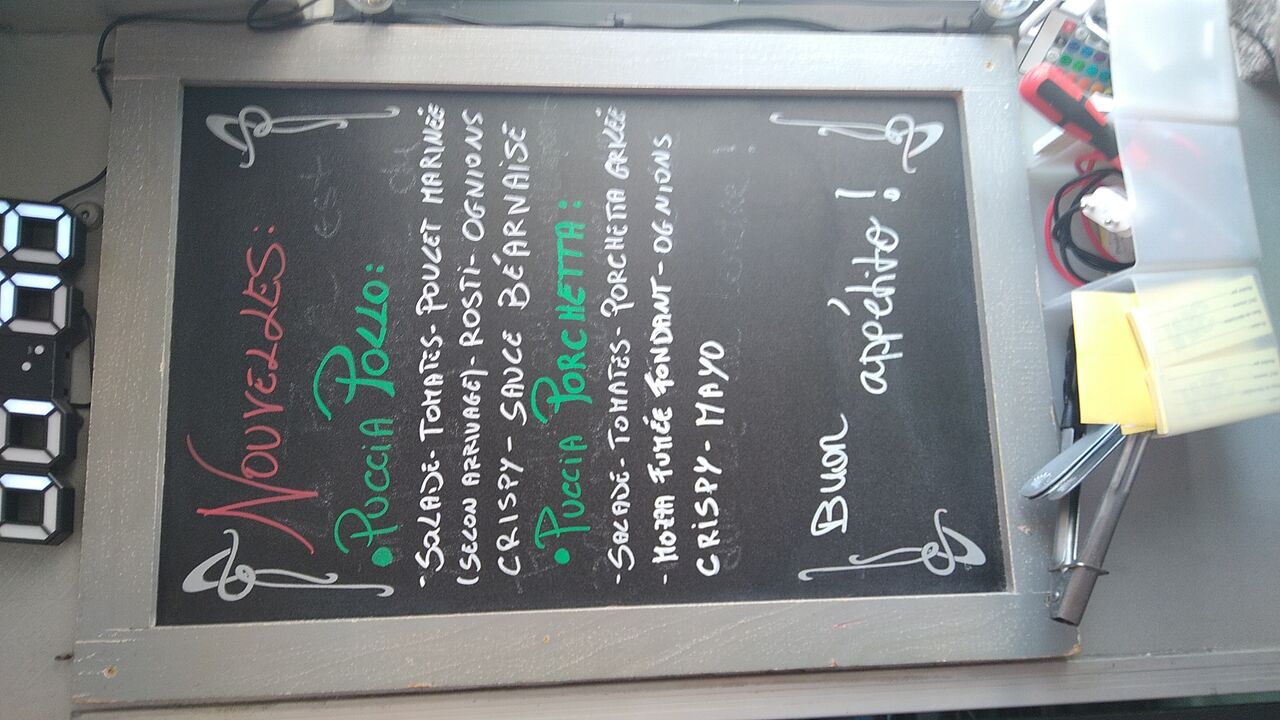 NOUVELLES:
• PUCCIA POLLO:
- SALADE - TOMATES - POULET MARINÉE
(SELON ARRIVAGE) - ROSTI - OGNIONS
CRISPY - SAUCE BÉARNAISE
• PUCCIA PORCHETTA:
- SALADE - TOMATES - PORCHETTA GRILÉE
- MOZZA FUMÉE FONDANT - OGNIONS
CRISPY - MAYO
Buon appétito !